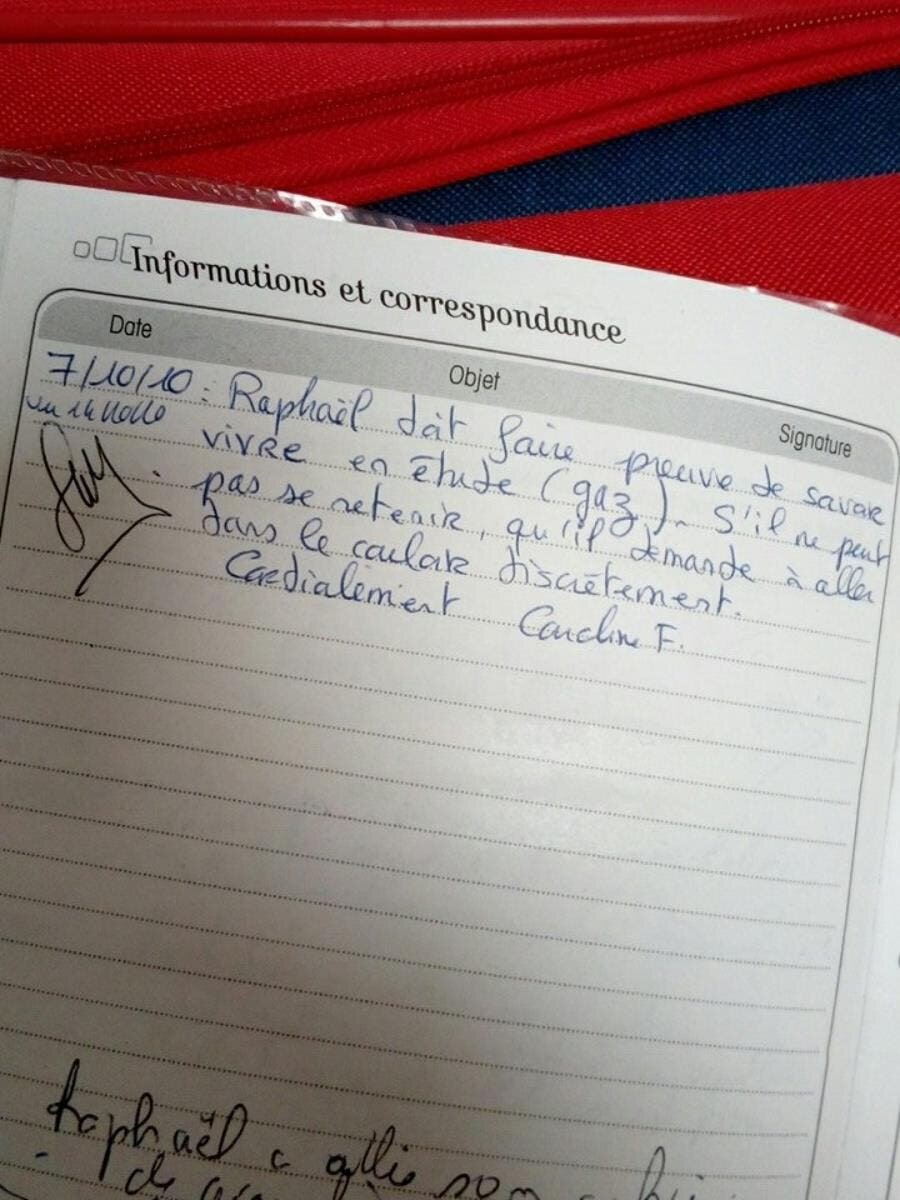 Informations et correspondance
Date Objet Signature
7/10/10 : Raphaël doit faire preuve de savoir
vivre en étude (gaz). S'il ne peut
pas se retenir, qu'il demande à aller
dans le couloir discrètement.
Cordialement Caroline F.
Raphaël a oublié son
de